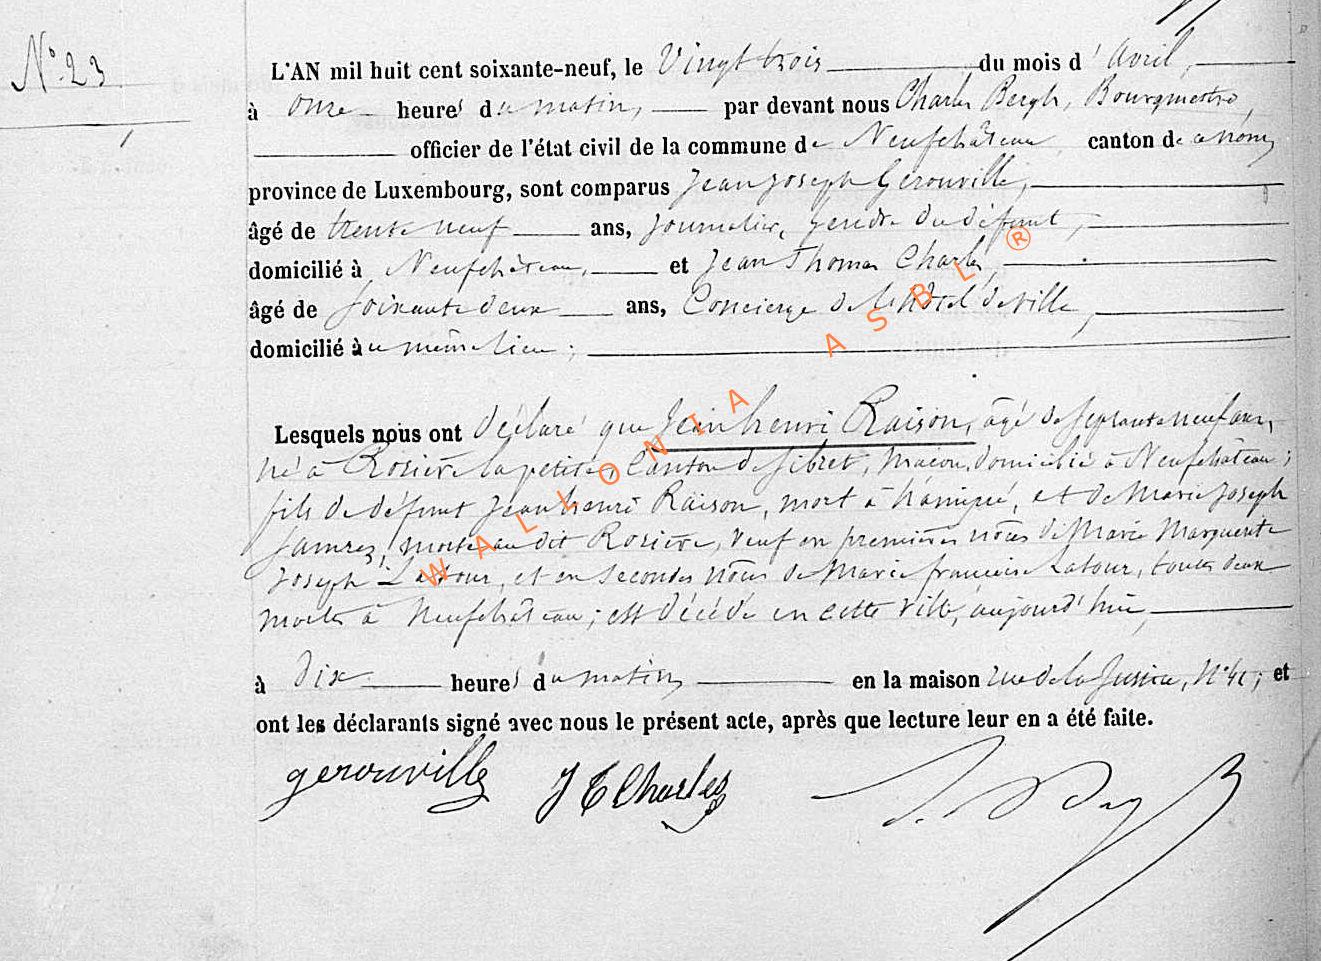 N° 23
L'AN mil huit cent soixante-neuf, le Vingt trois du mois d'Avril,
à onze heures du matin, par devant nous Charles Bergh, Bourgmestre,
officier de l'état civil de la commune de Neufchâteau, canton de ce nom,
province de Luxembourg, sont comparus Jean Joseph Gerouville,
âgé de trente neuf ans, journalier, gendre du défunt,
domicilié à Neufchâteau, et Jean Thomas Charles,
âgé de soixante deux ans, Concierge de l'hôtel de ville,
domicilié au même lieu ;
Lesquels nous ont déclaré que Jean henri Raison, âgé de septante neuf ans,
né à Rosière la petite, Canton de Sibret, Maçon, domicilié à Neufchâteau ;
fils de défunt Jean henri Raison, mort à hamipré, et de Marie Joseph
Jamrez, morte au dit Rosière, Veuf en premières nôces de Marie Marguerite
Joseph Latour, et en secondes nôces de Marie françoise Latour, toutes deux
mortes à Neufchâteau ; est décédé en cette ville, aujourd'hui,
à Dix heures du matin en la maison rue de la Justice, N° 41 ; et
ont les déclarants signé avec nous le présent acte, après que lecture leur en a été faite.
gerouville J T Charles
WALLONIA ASBL ®